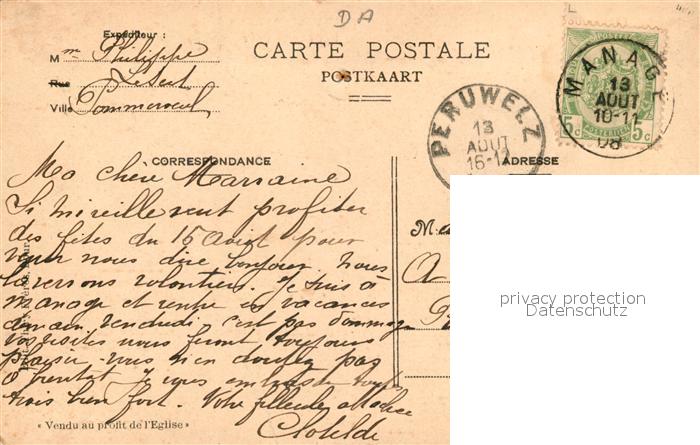 DA
Expéditeur :
Mme Philippe
Rue
Ville Pommeroeul
CARTE POSTALE
POSTKAART
MANAGE
13
AOUT
10-11
08
5c 5c
PERUWELZ
13
AOUT
16-17
CORRESPONDANCE
ADRESSE
Ma chère Marraine
Si Mireille veut profiter
des fêtes du 15 Août pour
venir nous dire bonjour. Nous
la verrons volontiers. Je suis à
manage et rentre en vacances
demain, vendredi. c'est pas dommage
vos visites nous feront toujours
plaisir - vous n'en doutez pas
à bientôt je vous embrasse
bien fort. Votre filleule
Clotilde
M
A
« Vendu au profit de l'Eglise »
privacy protection
Datenschutz